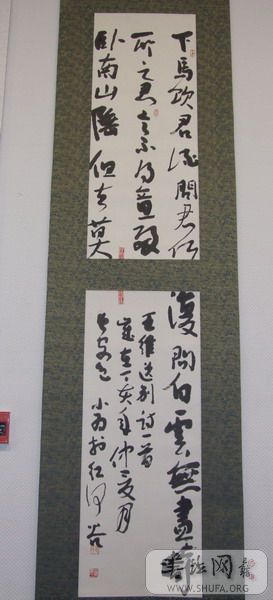 下馬飲君酒問君何
所之君言不得意歸
臥南山陲但去莫
復問白雲無盡時
王維送別詩一首
歲在丁亥年仲夏月
於紅河谷
書法网
WWW.SHUFA.ORG